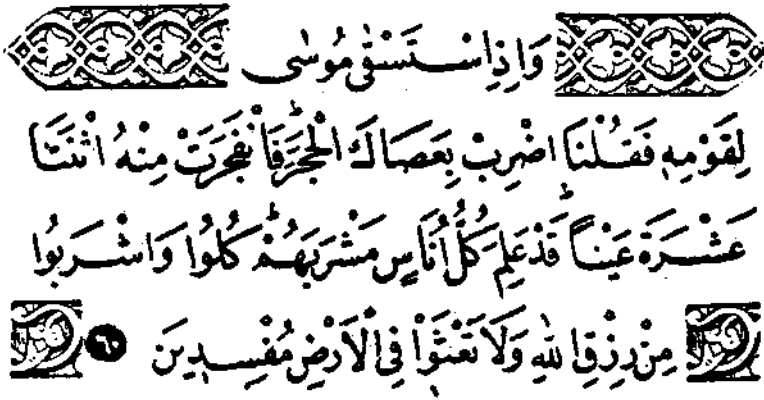 وَاِذِ اسْتَسْقٰى مُوسٰى
لِقَوْمِهٖ فَقُلْنَا اضْرِبْ بِعَصَاكَ الْحَجَرَۜ فَانْفَجَرَتْ مِنْهُ اثْنَتَا
عَشْرَةَ عَيْنًاۜ قَدْ عَلِمَ كُلُّ اُنَاسٍ مَشْرَبَهُمْۜ كُلُوا وَاشْرَبُوا
مِنْ رِزْقِ اللّٰهِ وَلَا تَعْثَوْا فِي الْاَرْضِ مُفْسِدٖينَ ٦٠